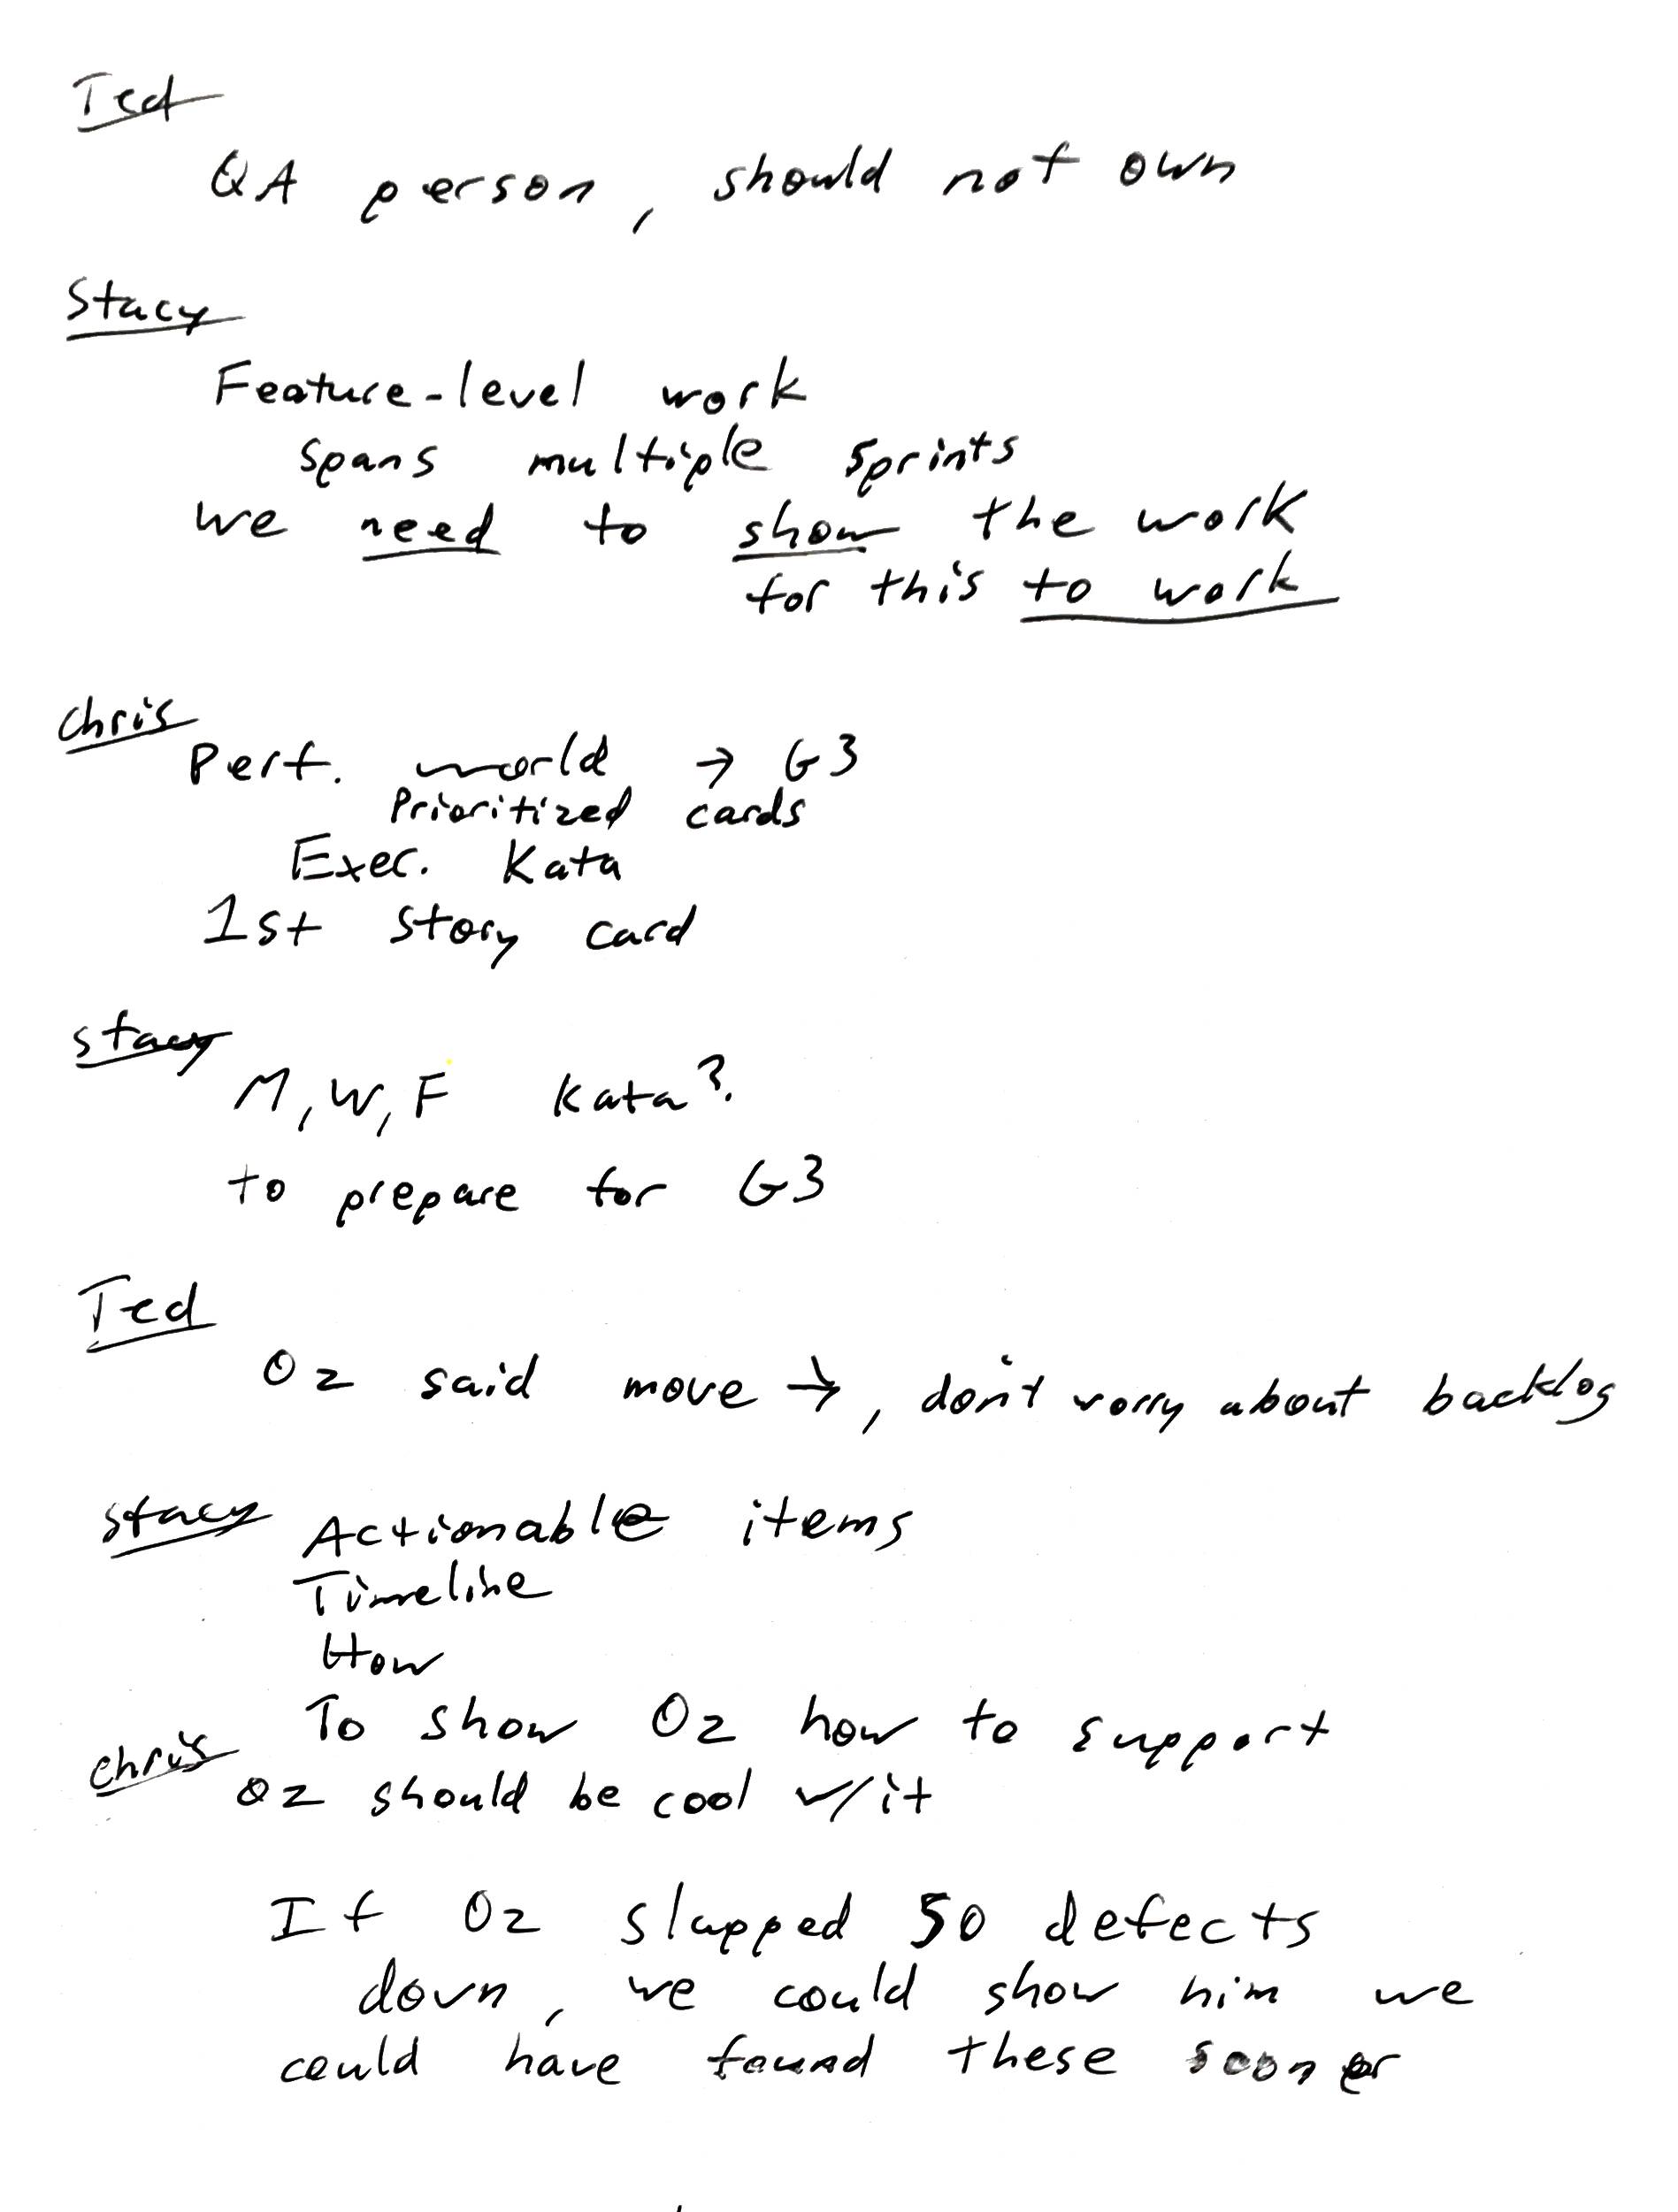 Ted
QA person, should not own
Stacy
Feature-level work
spans multiple sprints
we need to show the work
for this to work
Chris
Perf. world → G3
Prioritized cards
Exec. Kata
1st story card
Stacy
M, W, F Kata?
to prepare for G3
Ted
Oz said move →, don't worry about backlog
Stacy
Actionable items
Timeline
How
To show Oz how to support
Chris
Oz should be cool w/it
If Oz slapped 50 defects
down, we could show him we
could have found these sooner